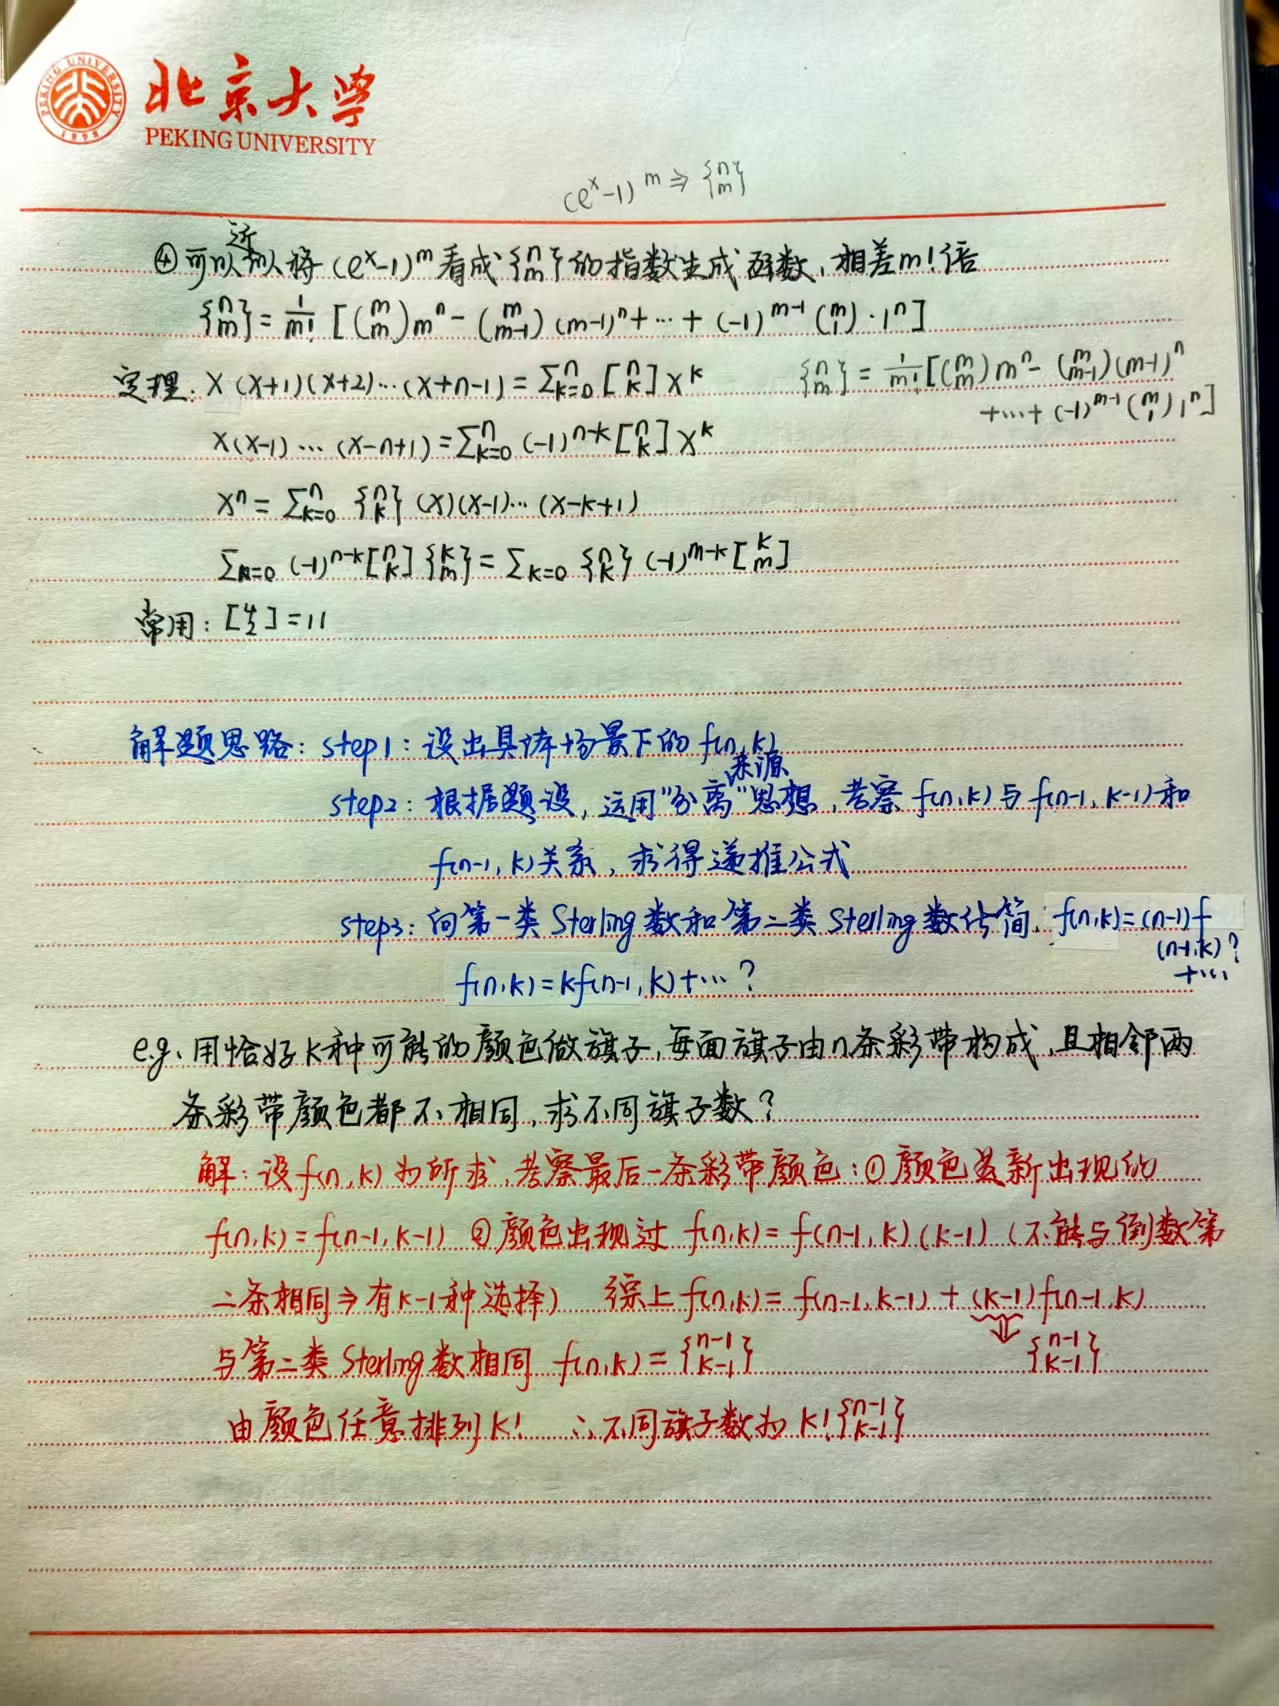 北京大学
PEKING UNIVERSITY
PEKING UNIVERSITY
1898
(eˣ-1)^m ⇒ {n m}
④可以近似将(eˣ-1)^m看成{n m}的指数生成函数,相差m!倍
{n m} = 1/m! [(m m)m^n - (m m-1)(m-1)^n + … + (-1)^{m-1}(m 1)·1^n]
定理: x(x+1)(x+2)…(x+n-1) = Σ_{k=0}^n [n k] x^k
{n m} = 1/m! [(m m)m^n - (m m-1)(m-1)^n
+…+ (-1)^{m-1}(m 1)1^n]
x(x-1)…(x-n+1) = Σ_{k=0}^n (-1)^{n-k} [n k] x^k
x^n = Σ_{k=0}^n {n k} (x)(x-1)…(x-k+1)
Σ_{k=0} (-1)^{n-k} [n k] {k m} = Σ_{k=0} {n k} (-1)^{m-k} [k m]
常用: [4 2] = 11
解题思路: step1: 设出具体场景下的f(n,k)
来源
step2: 根据题设,运用"分离"思想,考察f(n,k)与f(n-1,k-1)和
f(n-1,k)关系,求得递推公式
step3: 向第一类Sterling数和第二类Sterling数化简. f(n,k)=(n-1)f
(n-1,k)?
+…
f(n,k)=kf(n-1,k)+…?
e.g. 用恰好k种可能的颜色做旗子,每面旗子由n条彩带构成,且相邻两
条彩带颜色都不相同,求不同旗子数?
解: 设f(n,k)为所求,考察最后一条彩带颜色: ①颜色是新出现的
f(n,k)=f(n-1,k-1) ②颜色出现过 f(n,k)=f(n-1,k)(k-1) (不能与倒数第
二条相同⇒有k-1种选择) 综上f(n,k)=f(n-1,k-1)+(k-1)f(n-1,k)
⇓
与第二类Sterling数相同 f(n,k)={n-1 k-1} {n-1 k-1}
由颜色任意排列k! ∴不同旗子数为 k!{n-1 k-1}